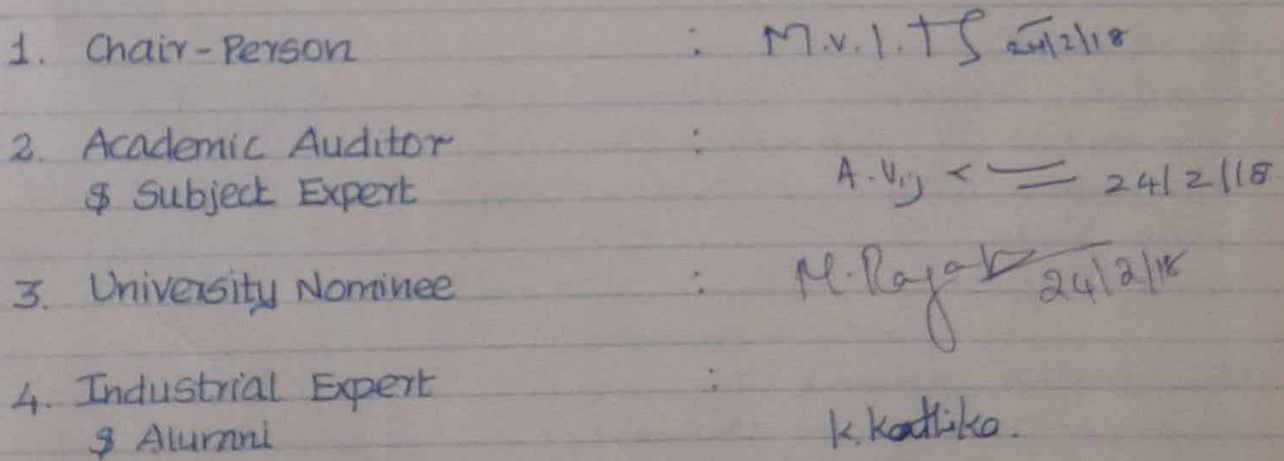 1. Chair-Person : M.V.I. 24/2/18
2. Academic Auditor :
& Subject Expert A. Vij 24/2/18
3. University Nominee : M. Raja 24/2/18
4. Industrial Expert :
& Alumni K.